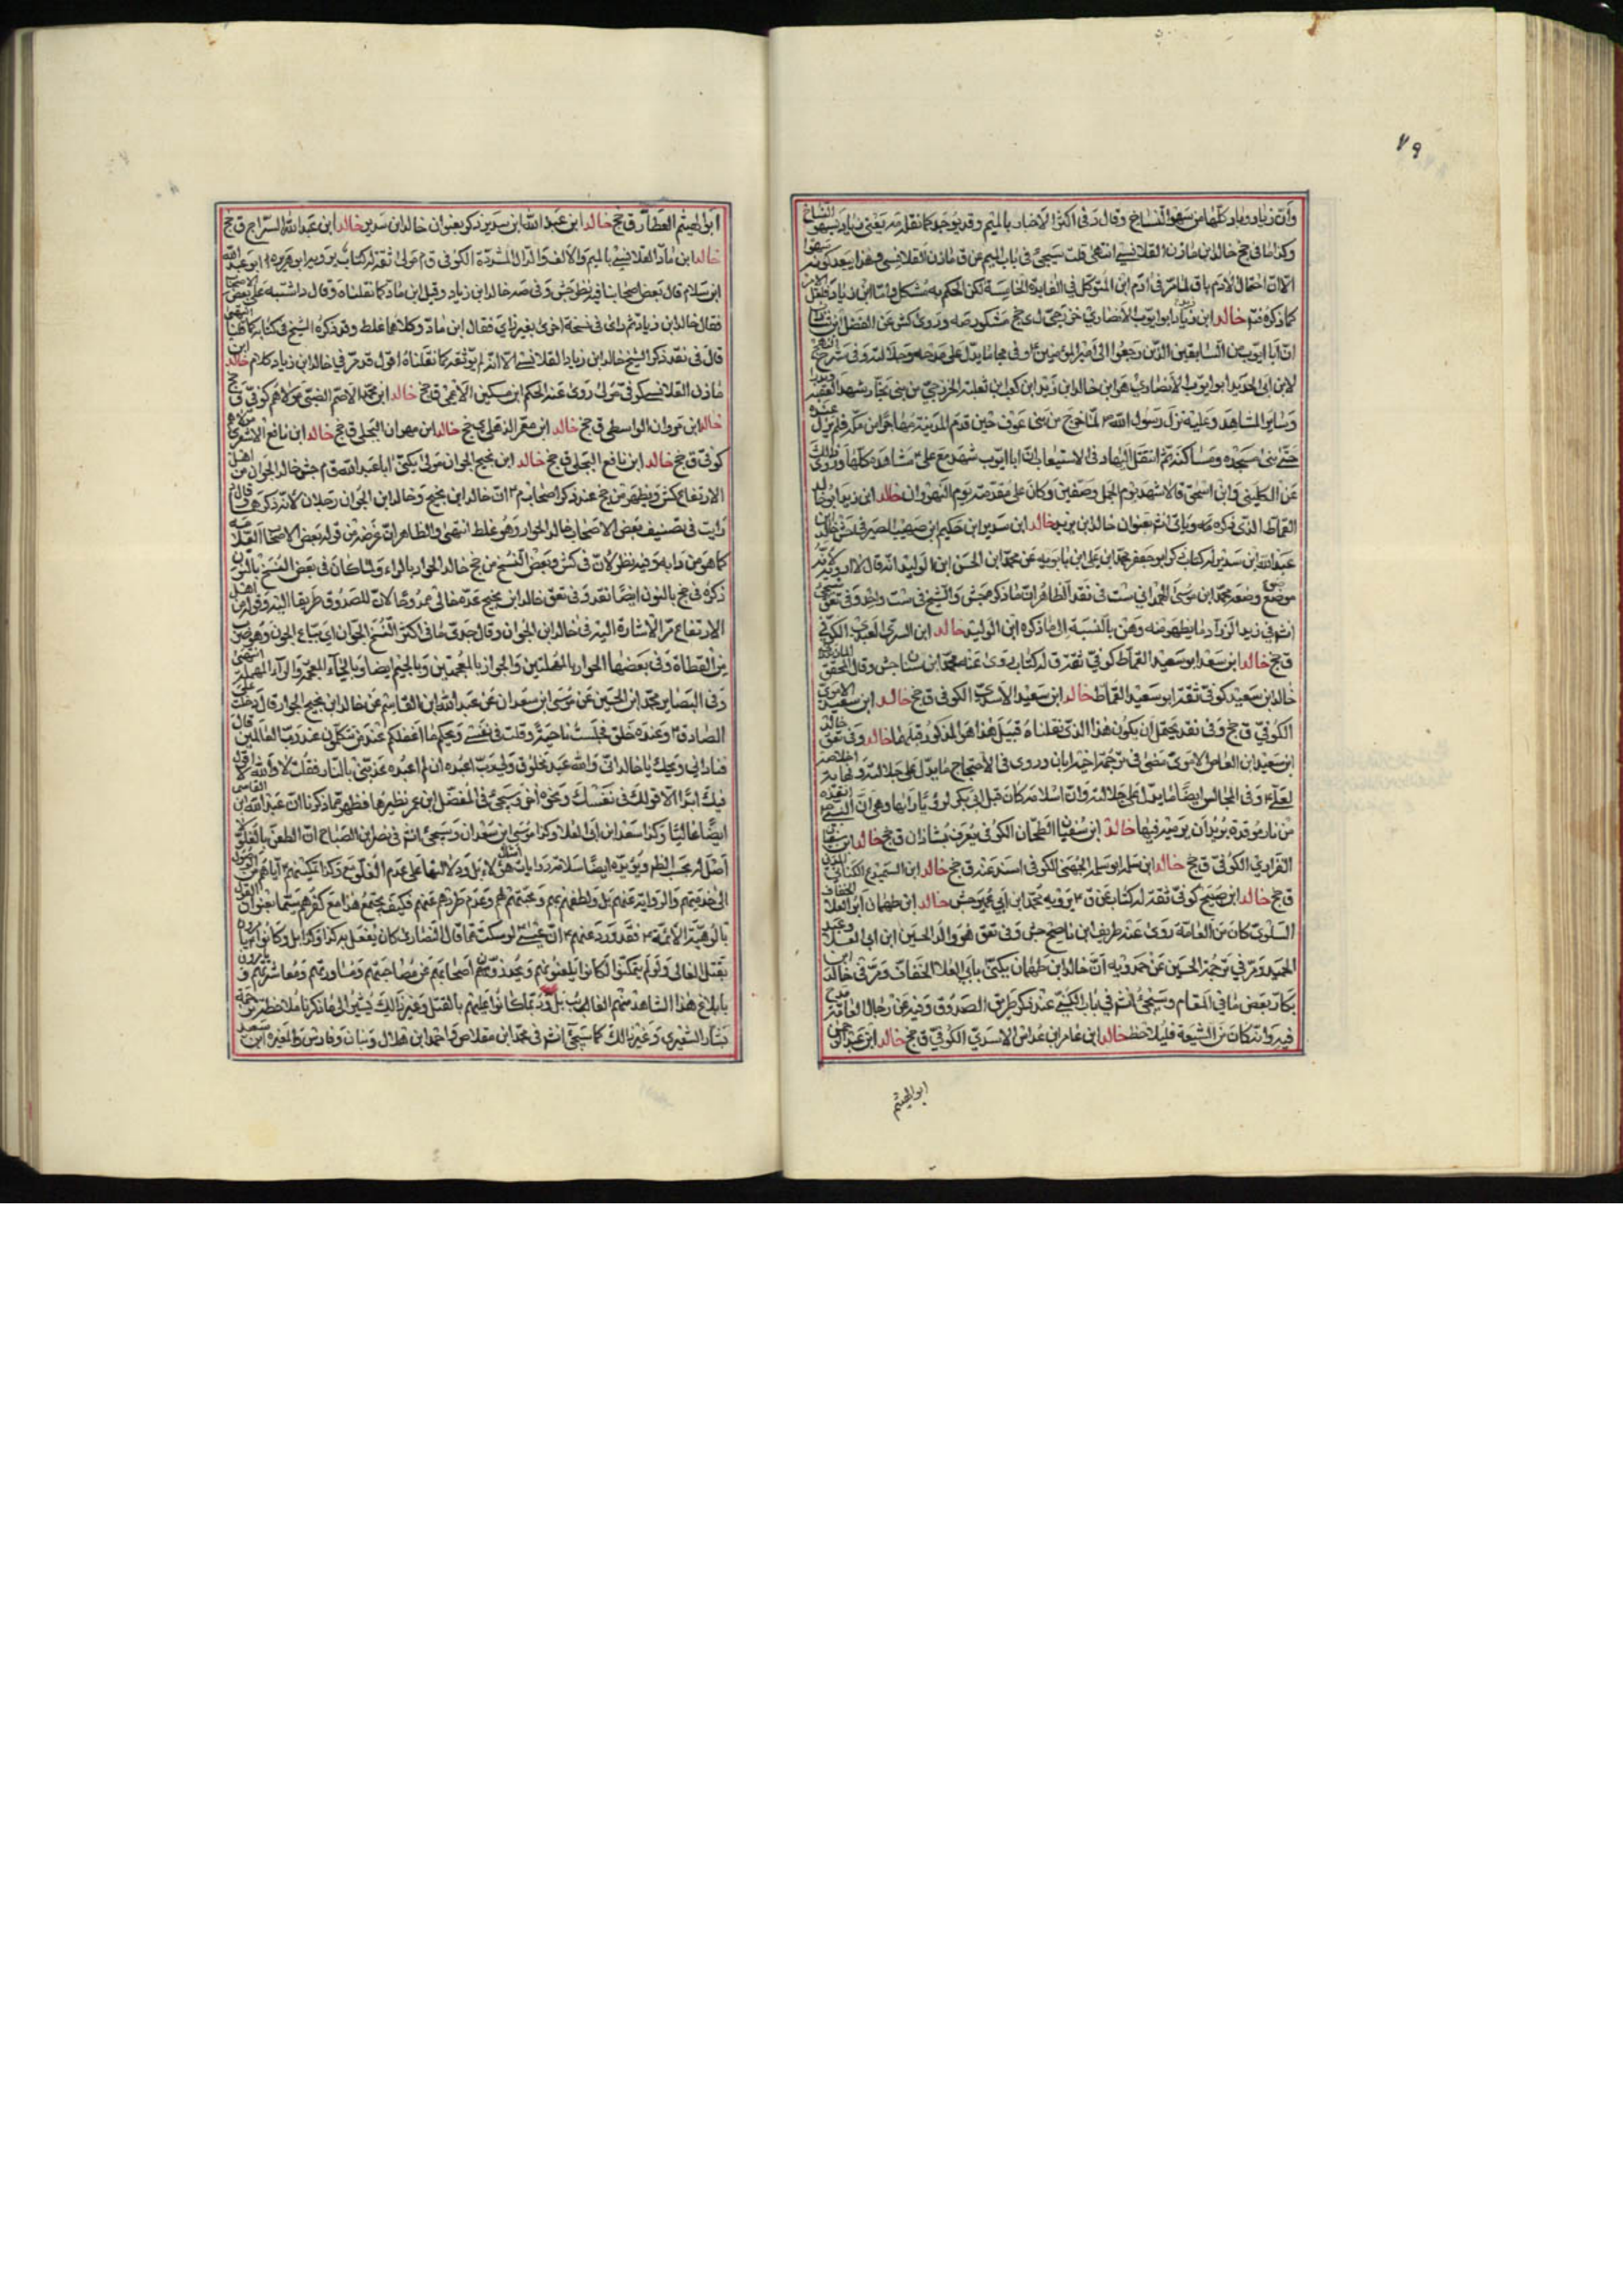 ٧٩
وان زياد وماد كلها من سهو النساخ وقال د فى اكثر الاخبار بالميم وقد يوجد كما نقله مر يعنى زياد سهو النساخ
وكذا ما فى جخ خالد ابن مازن القلانسى انتهى قلت سيجئ فى باب الميم عن ق مازن القلانسى فهذا يبعد كونه سهوا
كما ذكره فتم خالد ابن زياد ابو ايوب الانصارى خزرجى ى جخ مشكور صه وروى كش عن الفضل ابن
ان ابا ايوب من السابقين الذين رجعوا الى امير المؤمنين
لابن ابى الحديد ابو ايوب الانصارى هو ابن خالد ابن زيد ابن كعب ابن ثعلبة الخزرجى من بنى نجار شهد العقبة
وساير المشاهد وعليه نزل رسول الله ص لما خرج من بنى عوف حين قدم المدينة مهاجرا من مكة فلم يزل عنده
حتى بنى مسجده ومساكنه ثم انتقل اليها وفى الاستيعاب ان ابا ايوب شهد مع على ع مشاهده كلها وروى ذلك
عن الكلبى وابن اسحق قالا شهد يوم الجمل وصفين وكان على مقدمته يوم النهروان خالد ابن زيد ابو خالد
القماط الذى ذكره صه وياتى انش بعنوان خالد ابن يزيد خالد ابن سدير ابن حكيم ابن صهيب الصيرفى
عبد الله ابن سدير له كتاب ذكر ابو جعفر محمد ابن على ابن بابويه عن محمد ابن الحسن ابن الوليد انه قال لا ارويه لانه
موضوع وضعه محمد ابن موسى الهمدانى ست
انش فى زيد الزراد ما يظهر منه وهن بالنسبة الى ما ذكره ابن الوليد خالد ابن السرى العبدى الكوفى
ق جخ خالد ابن سعيد ابو سعيد القماط كوفى ثقة روى له كتاب روى عنه محمد ابن سنان جش وقال المحقق
خالد ابن سعيد كوفى ثقة ابو سعيد القماط خالد ابن سعيد الاسدى الكوفى ق جخ خالد ابن سعيد الاموى
الكوفى ق جخ وفى نقد يحتمل ان يكون هذا الذى نقلناه قبيل هذا هو المذكور قبلهما خالد وفى تعق خالد
ابن سعيد ابن العاص الاموى مضى فى ترجمة اخيه ابان وروى فى الاحتجاج ما يدل على جلالته
لعلى ع وفى المجالس ايضا ما يدل على جلالته وان اسلامه كان قبل ابى بكر لرؤيا رآها وهى ان
من نار موقدة يريد ان يرميه فيها خالد ابن سفيان الطحان الكوفى يعرف بشاذان ق جخ خالد ابن
الفزارى الكوفى ق جخ خالد ابن سلمه ابو سلمه الجهنى الكوفى اسند عنه ق جخ خالد ابن السميدع الكنانى المدنى
ق جخ خالد ابن صبيح كوفى ثقة له كتاب عن ق ع يرويه محمد ابن ابى عمير جش خالد ابن طهمان ابو العلا الخفاف
السلولى كان من العامة روى عنه طريف ابن ناصح جش وفى تعق هو والد الحسين ابن ابى العلا
الحميد ومر فى ترجمة الحسين عن حمدويه ان خالد ابن طهمان يكنى بابى العلا الخفاف ومر فى خالد ابن
بكار بعض ما فى المقام وسيجئ انش فى باب الكنى عند ذكر طريق الصدوق وفيه عن رجال العامة مدح
فيه وانه كان من الشيعة فليلاحظ خالد ابن عامر ابن عداس الاسدى الكوفى ق جخ خالد ابن عبد الرحمن
ابو الهيثم
ابو الهيثم العطار ق جخ خالد ابن عبد الله ابن سدير ذكر بعنوان خالد ابن سدير خالد ابن عبد الله السراج ق جخ
خالد ابن ماد القلانسى بالميم والالف والدال المشددة الكوفى ق م مولى ثقة له كتاب
ابن سلام قال بعض اصحابنا فيه نظر جش وفى صه خالد ابن زياد وقيل ابن ماد كما نقلناه وقال د اشتبه على بعض الاصحاب
فقال خالد ابن زياد ثم راى فى نسخة اخرى بغير زاى فقال ابن ماد وكلاهما غلط وقد ذكره الشيخ فى كتابه كما قلنا انتهى
قال فى نقد ذكر الشيخ خالد ابن زياد القلانسى الا انه لم يوثقه كما نقلناه اقول قد مر فى خالد ابن زياد كلام خالد ابن
مازن القلانسى كوفى مولى روى عنه الحكم ابن مسكين الاعمى ق جخ خالد ابن محمد الاصم الضبى مولاهم كوفى ق جخ
خالد ابن مروان الواسطى ق جخ خالد ابن معمر الذهلى ى جخ خالد ابن مهران البجلى ق جخ خالد ابن نافع الاشعرى مولاهم
كوفى ق جخ خالد ابن نافع البجلى ق جخ خالد ابن نجيح الجوان مولى يكنى ابا عبد الله ق م جش خالد الجوان من اهل
الارتفاع كش ويظهر من جخ عند ذكر اصحاب م ع ان خالد ابن نجيح وخالد ابن الجوان رجلان لانه ذكرهما وقال د
رايت فى تصنيف بعض الاصحاب خالد الحوار وهو غلط انتهى والظاهر ان غرضه من قوله بعض الاصحاب العلامه
كما هو من دابه وفيه نظر لان فى كش وبعض النسخ من جخ خالد الحوار بالراء ولما كان فى بعض النسخ بالنون
ذكره فى جخ بالنون ايضا نقد وفى تعق خالد ابن نجيح عده خالى ممدوحا لان للصدوق طريقا اليه وقوله من اهل
الارتفاع مر الاشارة اليه فى خالد ابن الجوان وقال جدى ما فى اكثر النسخ الجوان اى بياع الجون وهو ضرب
من القطاة وفى بعضها الحوار بالمهملتين والجواز بالمعجمتين وبالجيم ايضا وبالخاء المعجمة والراء المهملة انتهى
وفى البصاير محمد ابن الحسين عن موسى ابن سعدان عن عبد الله ابن القاسم عن خالد ابن نجيح الجوار قال دخلت على
الصادق ع وعنده خلق فجلست ناحية وقلت فى نفسى ويحكم ما اغفلكم عند من تتكلمون عند رب العالمين قال
فنادانى ويحك يا خالد انى والله عبد مخلوق ولى رب اعبده ان لم اعبده عذبنى بالنار فقلت لا والله لا اقول
فيك ابدا الا قولك فى نفسك ونحوه وسيجئ فى المفضل ابن عمر نظيرها فظهر مما ذكرنا ان عبد الله ابن القاسم
ايضا غاليا وكذا سعد ابن ابى العلا وكذا موسى ابن سعدان وسيجئ انش فى نصر ابن الصباح ان الطعن بالغلو
اصل له بحسب الظ ويؤيده ايضا سلامة روايات هؤلاء بل ودلالتها على عدم الغلو مع وكذا تمكينهم اياهم من الوصول
الى خدمتهم والرواية عنهم بل ولطفهم بهم ومحبتهم لهم وعدم طردهم عنهم فكيف يجتمع هذا مع كفرهم سيما بعنوان القول
بالوهية الائمة ع فقد ورد عنهم ع ان عيسى ع لو سكت عما قال النصارى كان يفعل به كذا وكذا بل وكانوا يامرون
بقتل الغالى ولو لم يتمكنوا كانوا يلعنونهم ويحذرون اصحابهم عن مصاحبتهم ومساورتهم ومعاشرتهم و
بابلاغ هذا الشاهد منهم الغائب بل وربما كانوا عليهم بالقتل وغير ذلك يشير الى ما ذكرنا ملاحظة ترجمة
بشار الشعيرى وغير ذلك كما سيجئ انش فى محمد ابن مقلاص واحمد ابن هلال وبنان وفارس والمغيره ابن سعيد